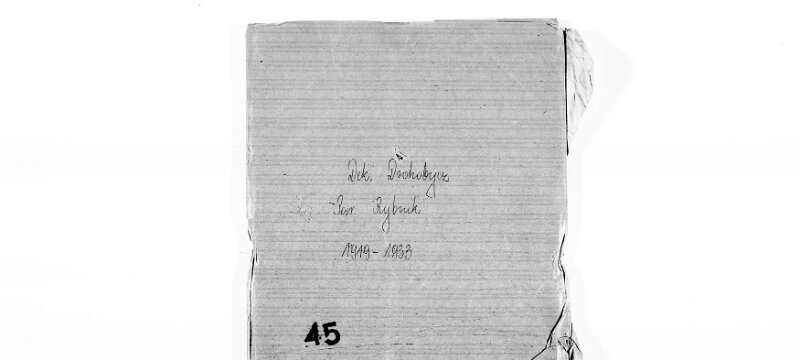 Dek. Drohobycz
Par. Rybnik
1919-1933
45